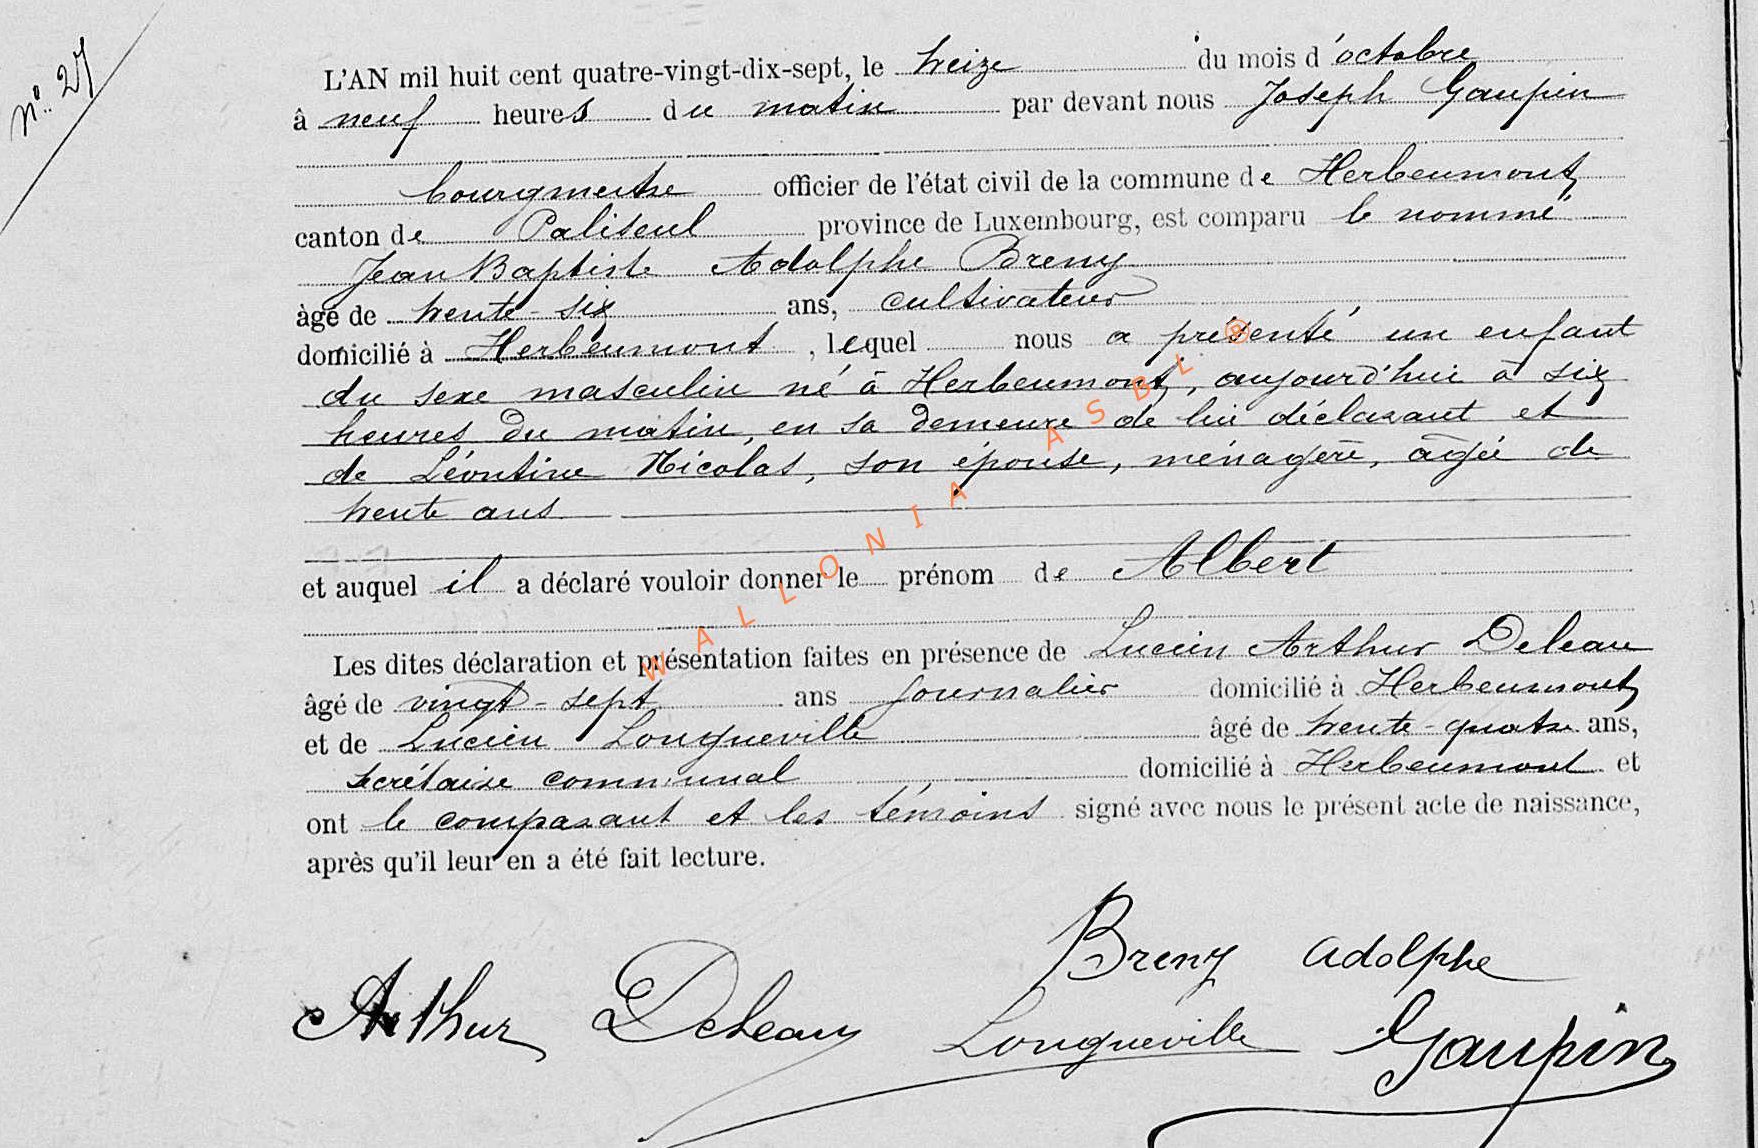 N° 27
L'AN mil huit cent quatre-vingt-dix-sept, le treize du mois d'octobre
à neuf heures du matin par devant nous Joseph Gaupin
bourgmestre officier de l'état civil de la commune de Herbeumont
canton de Paliseul province de Luxembourg, est comparu le nommé
Jean Baptiste Adolphe Breny
âgé de trente-six ans, cultivateur
domicilié à Herbeumont, lequel nous a présenté un enfant
du sexe masculin né à Herbeumont, aujourd'hui à six
heures du matin, en sa demeure de lui déclarant et
de Léontine Nicolas, son épouse, ménagère, âgée de
trente ans
et auquel il a déclaré vouloir donner le prénom de Albert
Les dites déclaration et présentation faites en présence de Lucien Arthur Deleau
âgé de vingt-sept ans journalier domicilié à Herbeumont
et de Lucien Longueville âgé de trente-quatre ans,
secrétaire communal domicilié à Herbeumont et
ont le comparant et les témoins signé avec nous le présent acte de naissance,
après qu'il leur en a été fait lecture.
Breny Adolphe
Arthur Deleau Longueville Gaupin
WALLONIA ASBL ®